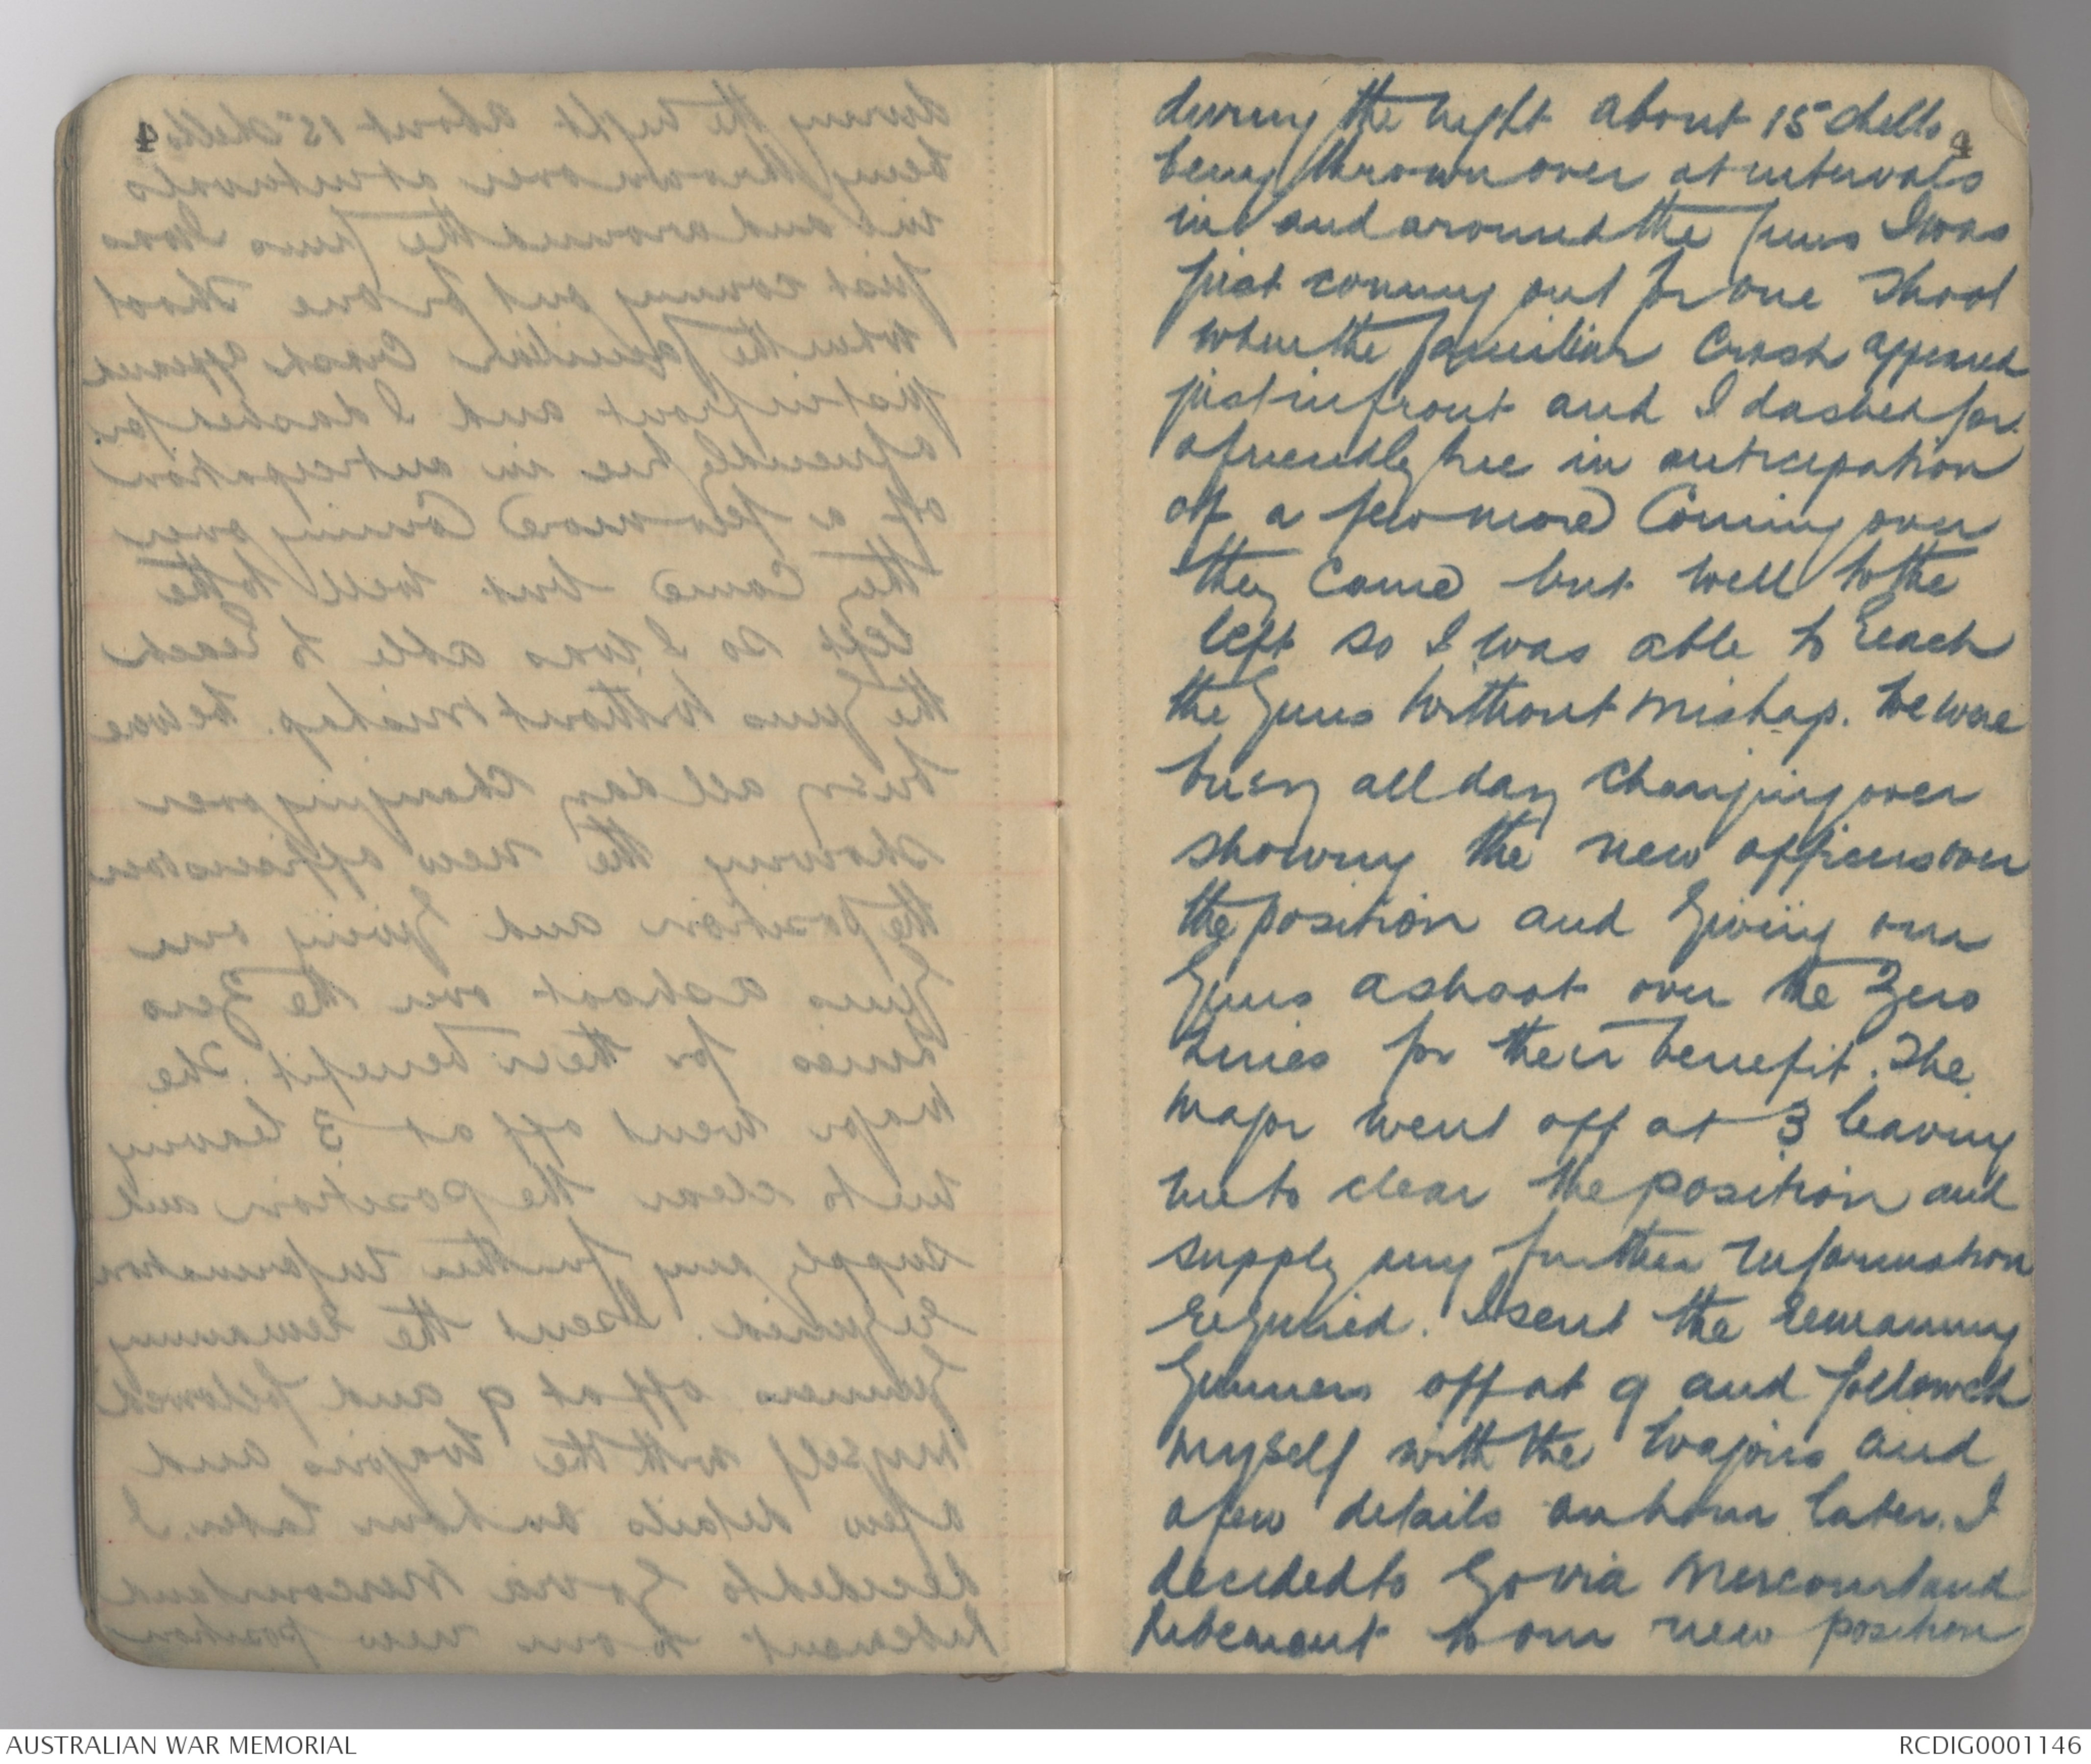 4
during the night about 15 shells
being thrown over at intervals
in and around the guns I was
just coming out for one shoot
when the familiar Crash appeared
just in front and I dashed for
a friendly tree in anticipation
of a few more Coming over
they came but well to the
left so I was able to reach
the guns without mishap. We were
busy all day changing over
showing the new officers over
the position and giving our
guns a shoot over the Zero
lines for their benefit. The
Major went off at 3 leaving
me to clear the position and
supply any further information
required. I sent the remaining
Gunners off at 9 and followed
myself with the wagons and
a few details an hour later. I
decided to go via Mericourt and
Ribemont to our new position
AUSTRALIAN WAR MEMORIAL
RCDIG0001146